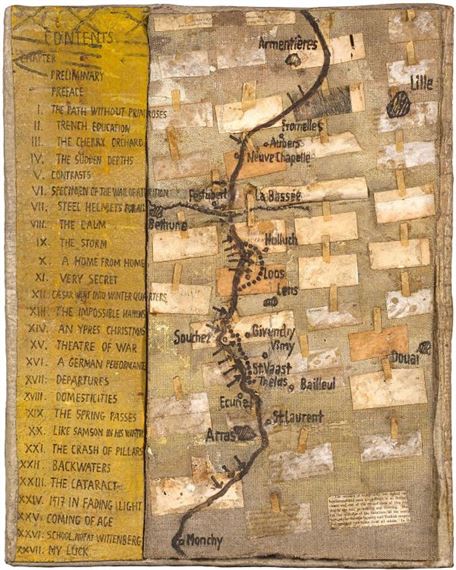 CONTENTS
CHAPTER
PRELIMINARY
PREFACE
I. THE PATH WITHOUT PRIMROSES
II. TRENCH EDUCATION
III. THE CHERRY ORCHARD
IV. THE SUDDEN DEPTHS
V. CONTRASTS
VI. SPECIMEN OF THE WAR OF ATTRITION
VII. STEEL HELMETS FOR ALL
VIII. THE CALM
IX. THE STORM
X. A HOME FROM HOME
XI. VERY SECRET
XII. CÆSAR WENT INTO WINTER QUARTERS
XIII. THE IMPOSSIBLE HAPPENS
XIV. AN YPRES CHRISTMAS
XV. THEATRE OF WAR
XVI. A GERMAN PERFORMANCE
XVII. DEPARTURES
XVIII. DOMESTICITIES
XIX. THE SPRING PASSES
XX. LIKE SAMSON IN HIS WRATH
XXI. THE CRASH OF PILLARS
XXII. BACKWATERS
XXIII. THE CATARACT
XXIV. 1917 IN FADING LIGHT
XXV. COMING OF AGE
XXVI. SCHOOL, NOT AT WITTENBERG
XXVII. MY LUCK
Armentières
Lille
Fromelles
Aubers
Neuve Chapelle
Festubert
La Bassée
Bethune
Hulluch
Loos
Lens
Souchez
Givenchy
Vimy
Douai
St.Vaast
Thelus
Bailleul
Ecurie
St.Laurent
Arras
Monchy